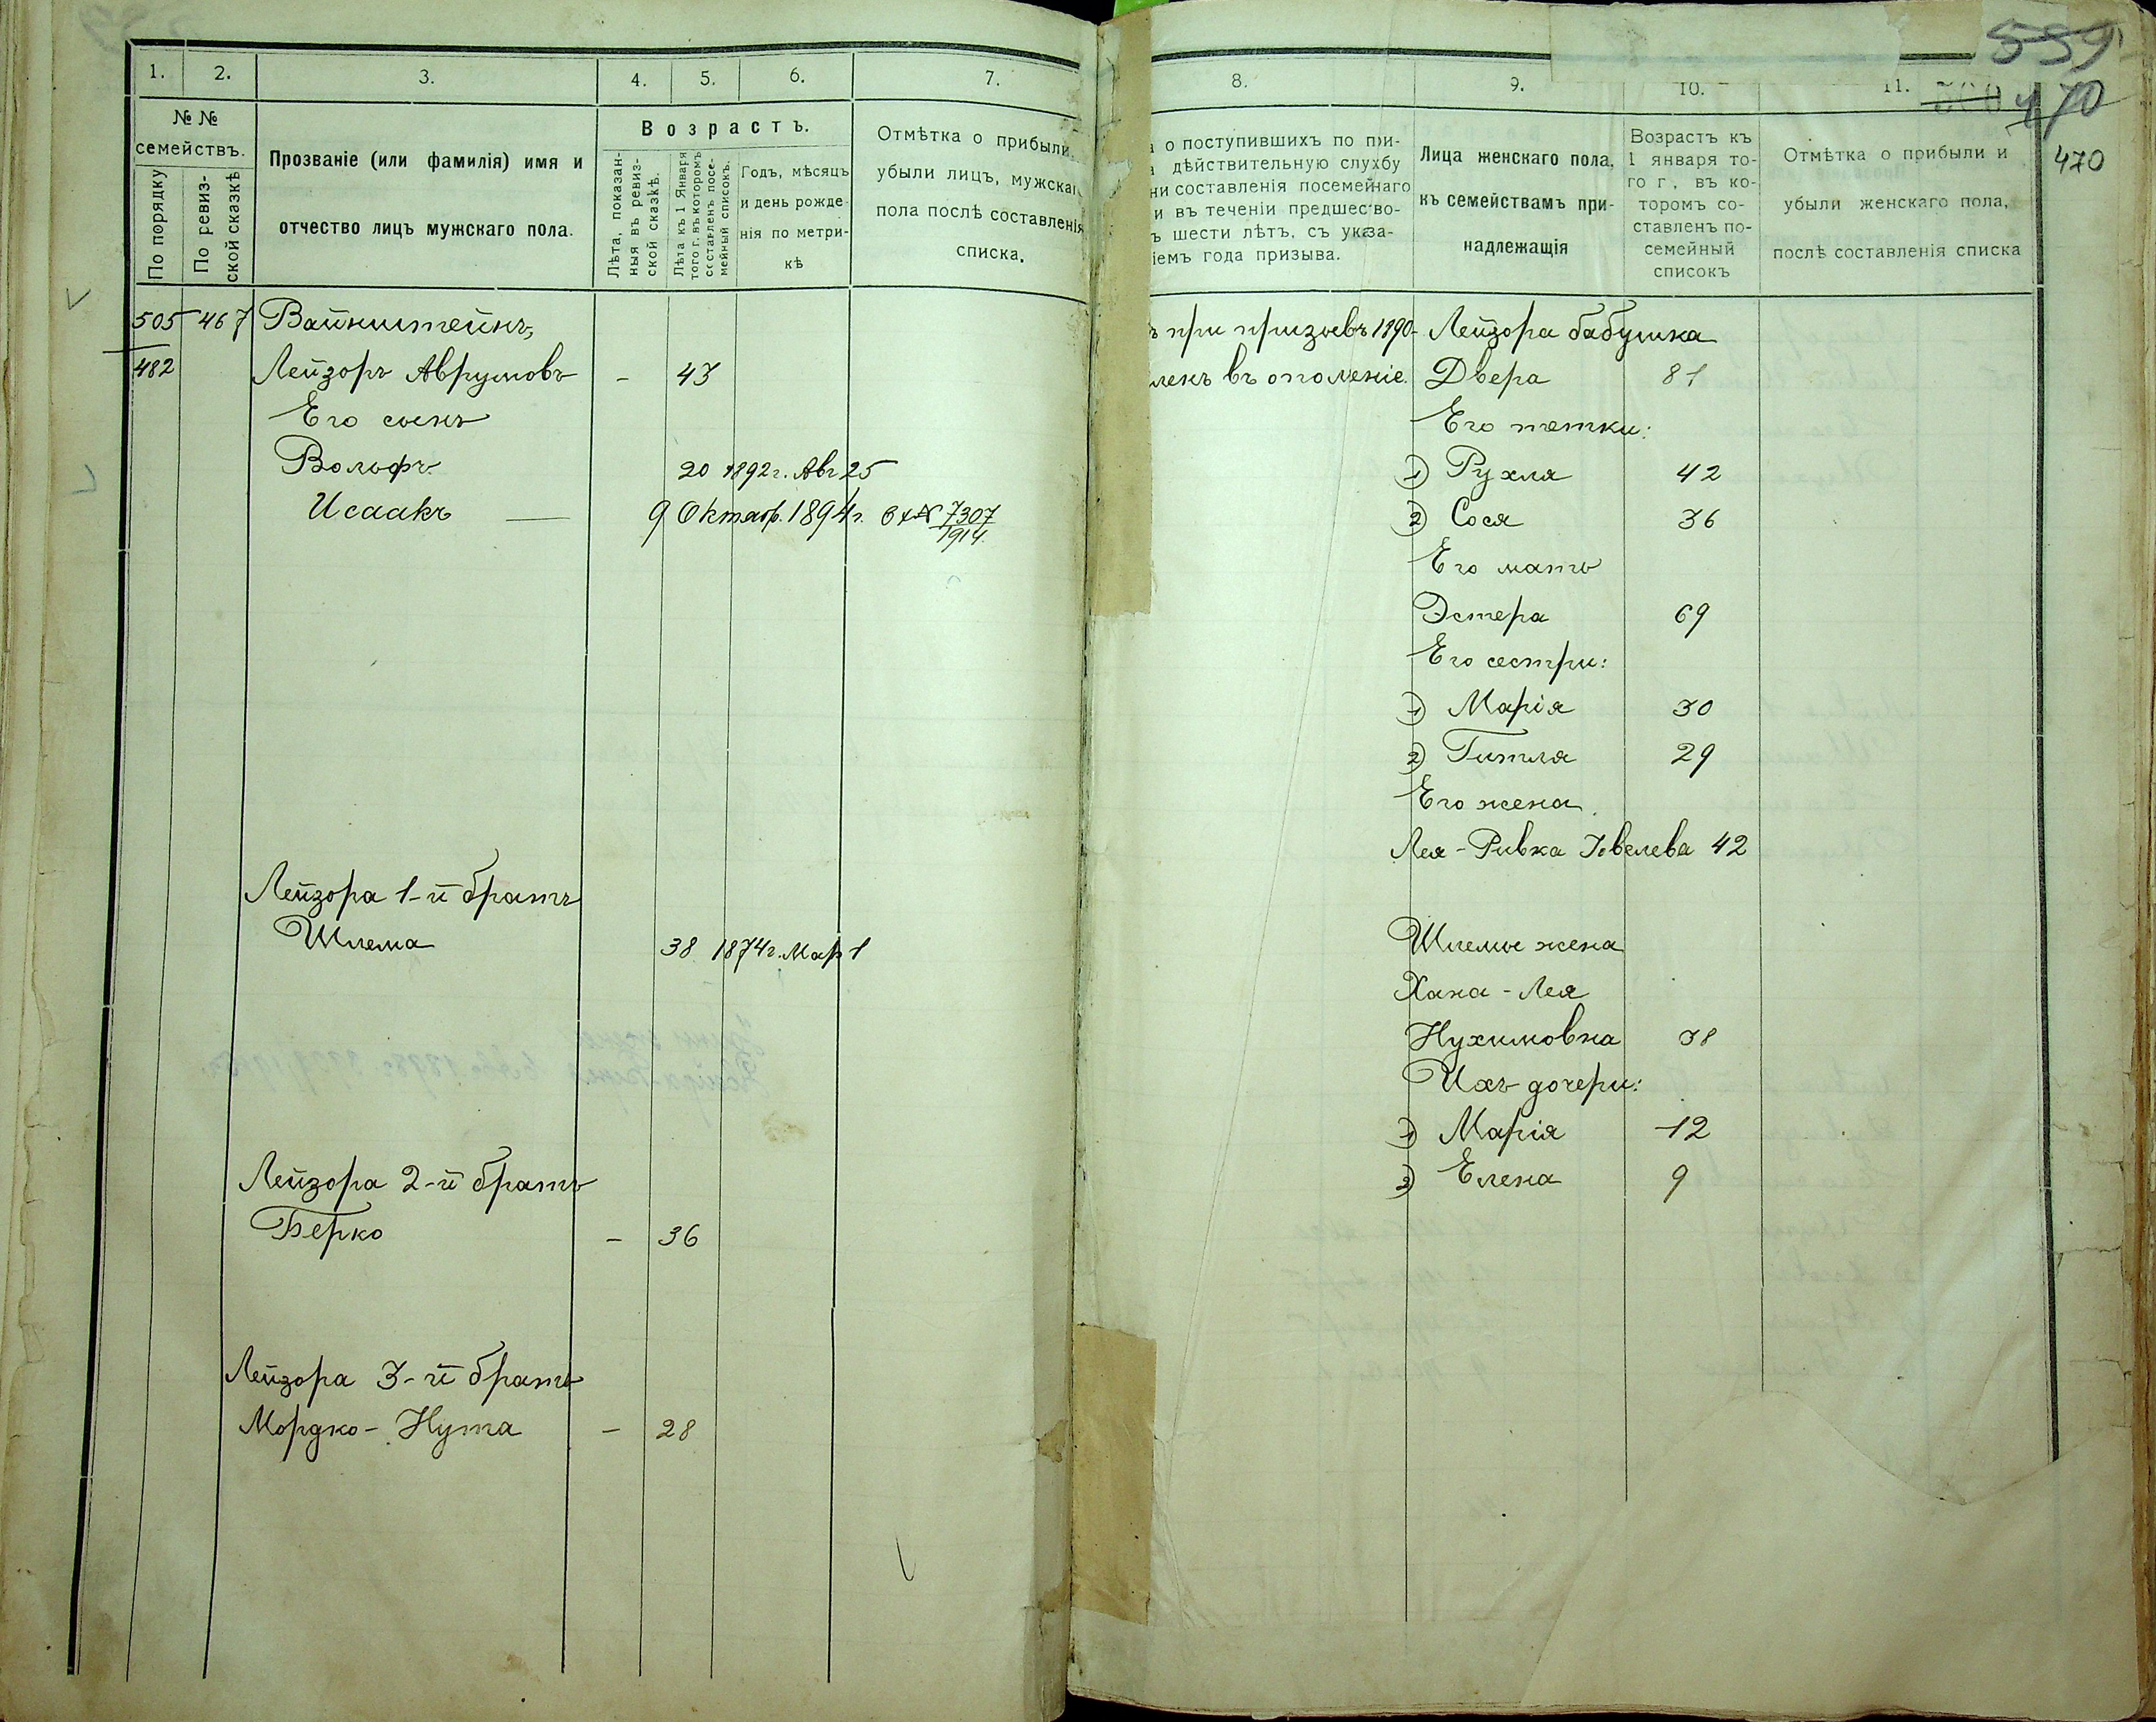 1. 2. 3. 4. 5. 6. 7.
№ №
семействъ.
По порядку
По ревиз-
ской сказкѣ
Прозваніе (или фамилія) имя и
отчество лицъ мужскаго пола.
Возрастъ.
Лѣта, показан-
ныя въ ревиз-
ской сказкѣ.
Лѣта къ 1 Января
того г. въ которомъ
составленъ посе-
мейный списокъ.
Годъ, мѣсяцъ
и день рожде-
нія по метри-
кѣ
Отмѣтка о прибыли,
убыли лицъ, мужскаг
пола послѣ составленія
списка.
505 467 Вайнштейнъ,
482 Лейзоръ Аврумовъ - 43
Его сынъ
Вольфъ 20 1892 г. Авг 25
Исаакъ — 9 Октяб. 1894 г. вх № 7307
1914
Лейзора 1-й братъ
Шлема 38 1874 г. Мар 1
Лейзора 2-й братъ
Берко - 36
Лейзора 3-й братъ
Мордко-Нута - 28
559
8. 9. 10. 11. 470
470
а о поступившихъ по при-
а дѣйствительную службу
ни составленія посемейнаго
и въ теченіи предшество-
ъ шести лѣтъ, съ указа-
іемъ года призыва.
Лица женскаго пола,
къ семействамъ при-
надлежащія
Возрастъ къ
1 января то-
го г. въ ко-
торомъ со-
ставленъ по-
семейный
списокъ
Отмѣтка о прибыли и
убыли женскаго пола,
послѣ составленія списка
ъ при призывѣ 1890 - Лейзора бабушка
ленъ въ ополченіе. Двера 81
Его тетки:
1) Рухля 42
2) Сося 36
Его мать
Эстера 69
Его сестри:
1) Марія 30
2) Гитля 29
Его жена
Лея-Ривка Іовелева 42
Шлемы жена
Хана-Лея
Нухимовна 38
Ихъ дочери:
1) Марія 12
2) Елена 9